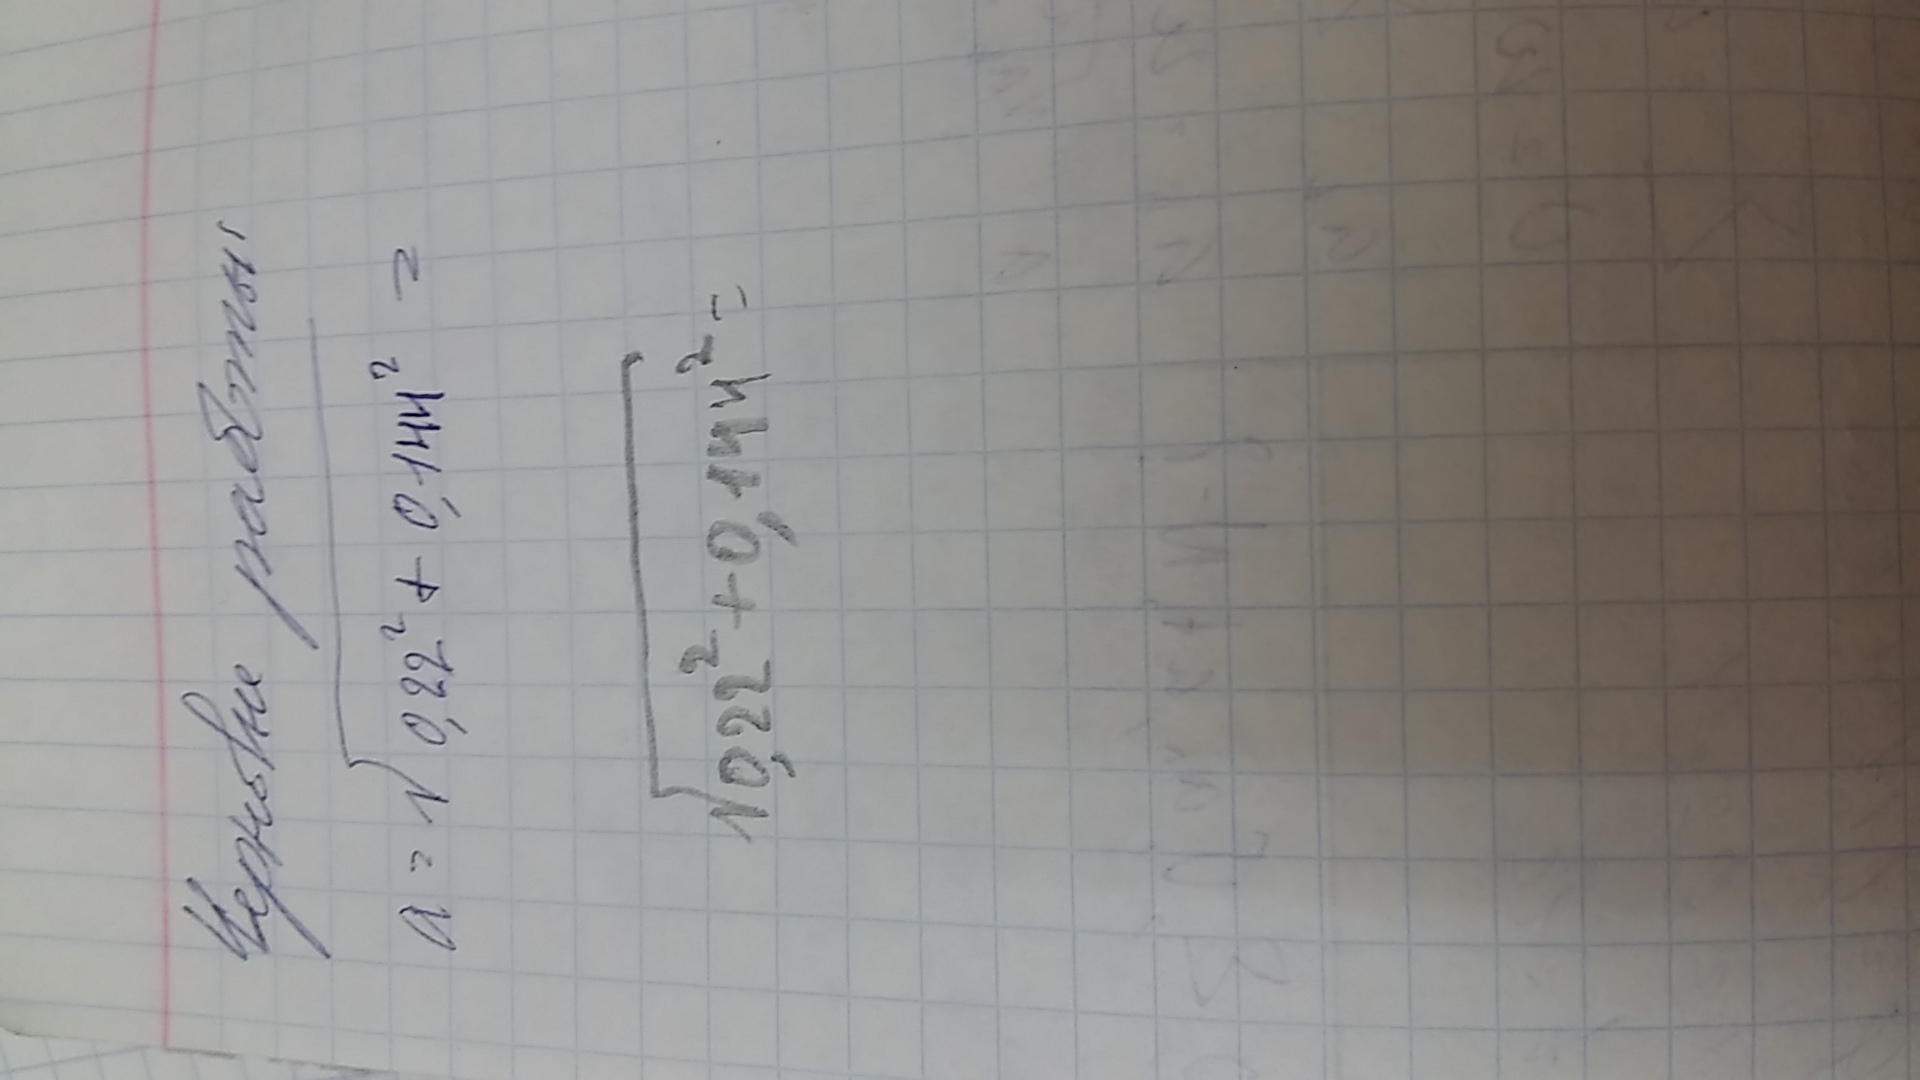 Черновые работы
a = √0,22² + 0,144² =
√0,22² + 0,144² =